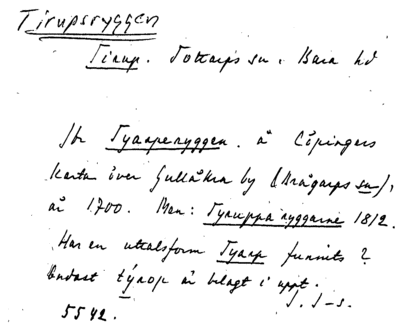 Tirupsryggen
Tirup. Tottarps sn. Bara hd
Jfr Tyaaperyggen. å Cöpingers
karta över Gullåkra by (Brågarps sn),
år 1700. Men: Tyruppa ryggarne 1812.
Har en uttalsform Tyarp funnits?
Endast týrop är belagt i uppt.
J. J-s.
5542.